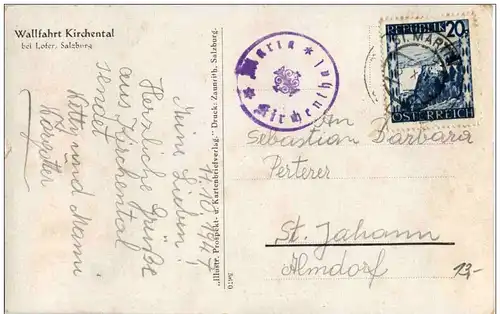 Wallfahrt Kirchental
bei Lofer, Salzburg
11.10.1947
Meine Lieben!
Herzliche Grüße
aus Kirchental
sendet
Kitty und Mami
"Illustr. Prospekt- u. Kartenbriefverlag." Druck: Zaunrith, Salzburg.
Maria
Kirchental
REPUBLIK 20g
ÖSTERREICH
ST. MARTIN
Sebastian Barbara
Perterer
St. Johann
Almdorf
13,-